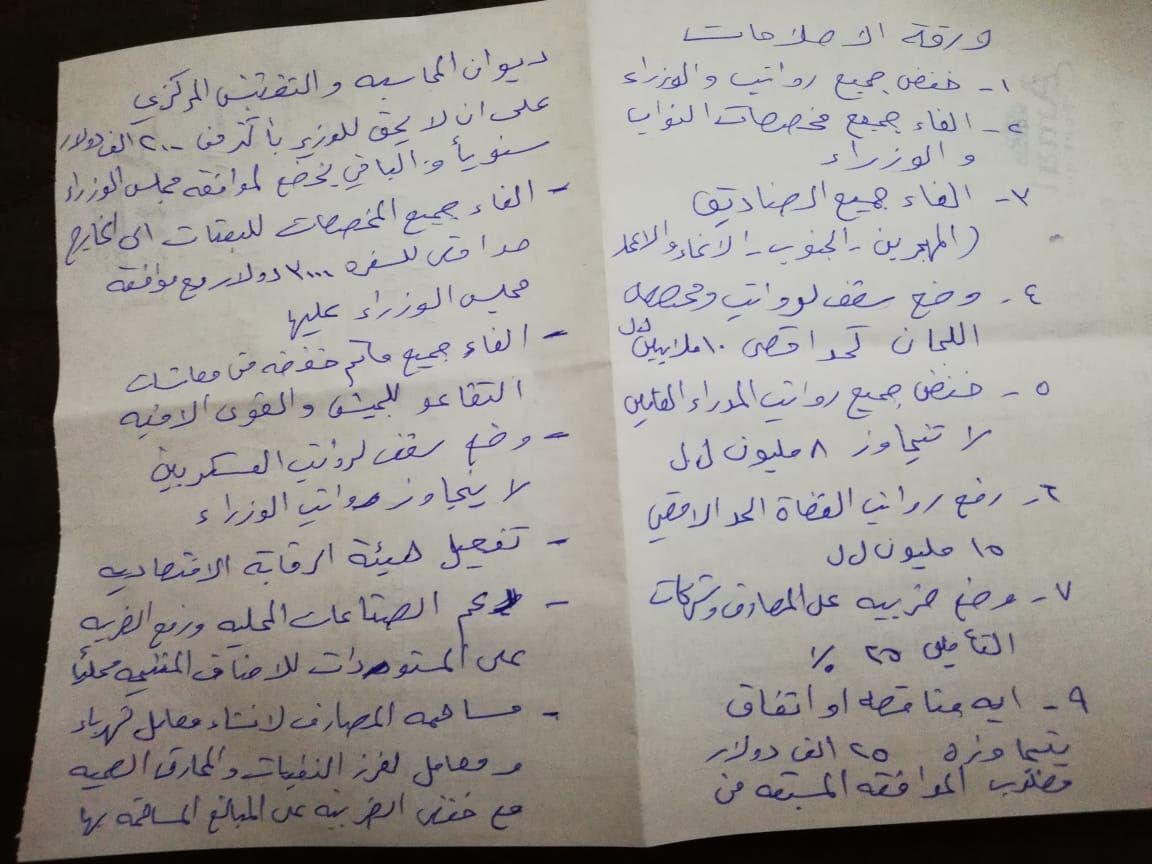 ورقة الاصلاحات
١- خفض جميع رواتب والوزراء
٢- الغاء جميع مخصصات النواب
والوزراء
٣- الغاء جميع الصناديق
(المهجرين - الجنوب - الانماء والاعمار
٤- وضع سقف لرواتب ومخصصه
اللجان كحد اقصى ١٠ ملايين ل.ل
٥- خفض جميع رواتب المدراء العامين
لا تتجاوز ٨ مليون ل.ل
٦- رفع رواتب القضاة الحد الاقصى
١٥ مليون ل.ل
٧- وضع ضريبه على المصارف وشركات
التأمين ٢٥ ٪
٩- ايه مناقصه او اتفاق
يتجاوزه ٢٥ الف دولار
مطلوب الموافقه المسبقه من
ديوان المحاسبه والتفتيش المركزي
على ان لا يحق للوزير باكثر من ٢٠٠ الف دولار
سنوياً والباقي يخضع لموافقه مجلس الوزراء
- الغاء جميع المخصصات للبعثات الى الخارج
حد اقصى للسفره ٣٠٠٠ دولار مع موافقة
مجلس الوزراء عليها
- الغاء جميع ماتم خفضه من معاشات
التقاعد للجيش والقوى الامنيه
- وضع سقف لرواتب العسكريين
لا يتجاوز رواتب الوزراء
- تفعيل هيئة الرقابة الاقتصاديه
- دعم الصناعات المحليه ورفع الضريبه
على المستوردات للاصناف المنتجه محلياً
- مساهمه المصارف لانشاء معامل كهرباء
ومعامل لفرز النفايات والمحارق الصحيه
مع خفض الضريبه على المبالغ المساهمة بها